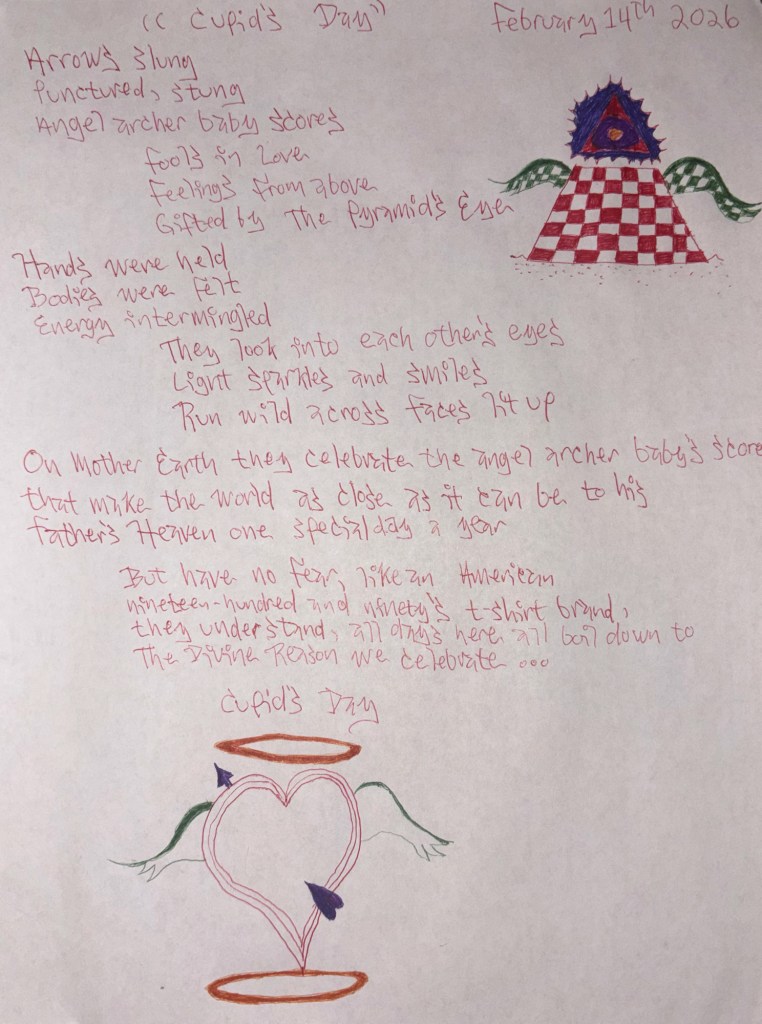 "Cupid's Day"
February 14th 2026
Arrows slung
Punctured, stung
Angel archer baby scores
Fools in love
Feelings from above
Gifted by The Pyramid's Eye
Hands were held
Bodies were felt
Energy intermingled
They look into each other's eyes
Light sparkles and smiles
Run wild across faces lit up
On Mother Earth they celebrate the angel archer baby's score
that make the world as close as it can be to his
father's Heaven one special day a year
But have no fear, like an American
nineteen-hundred and ninety's t-shirt brand,
they understand, all days here all boil down to
The Divine Reason we celebrate ...
Cupid's Day